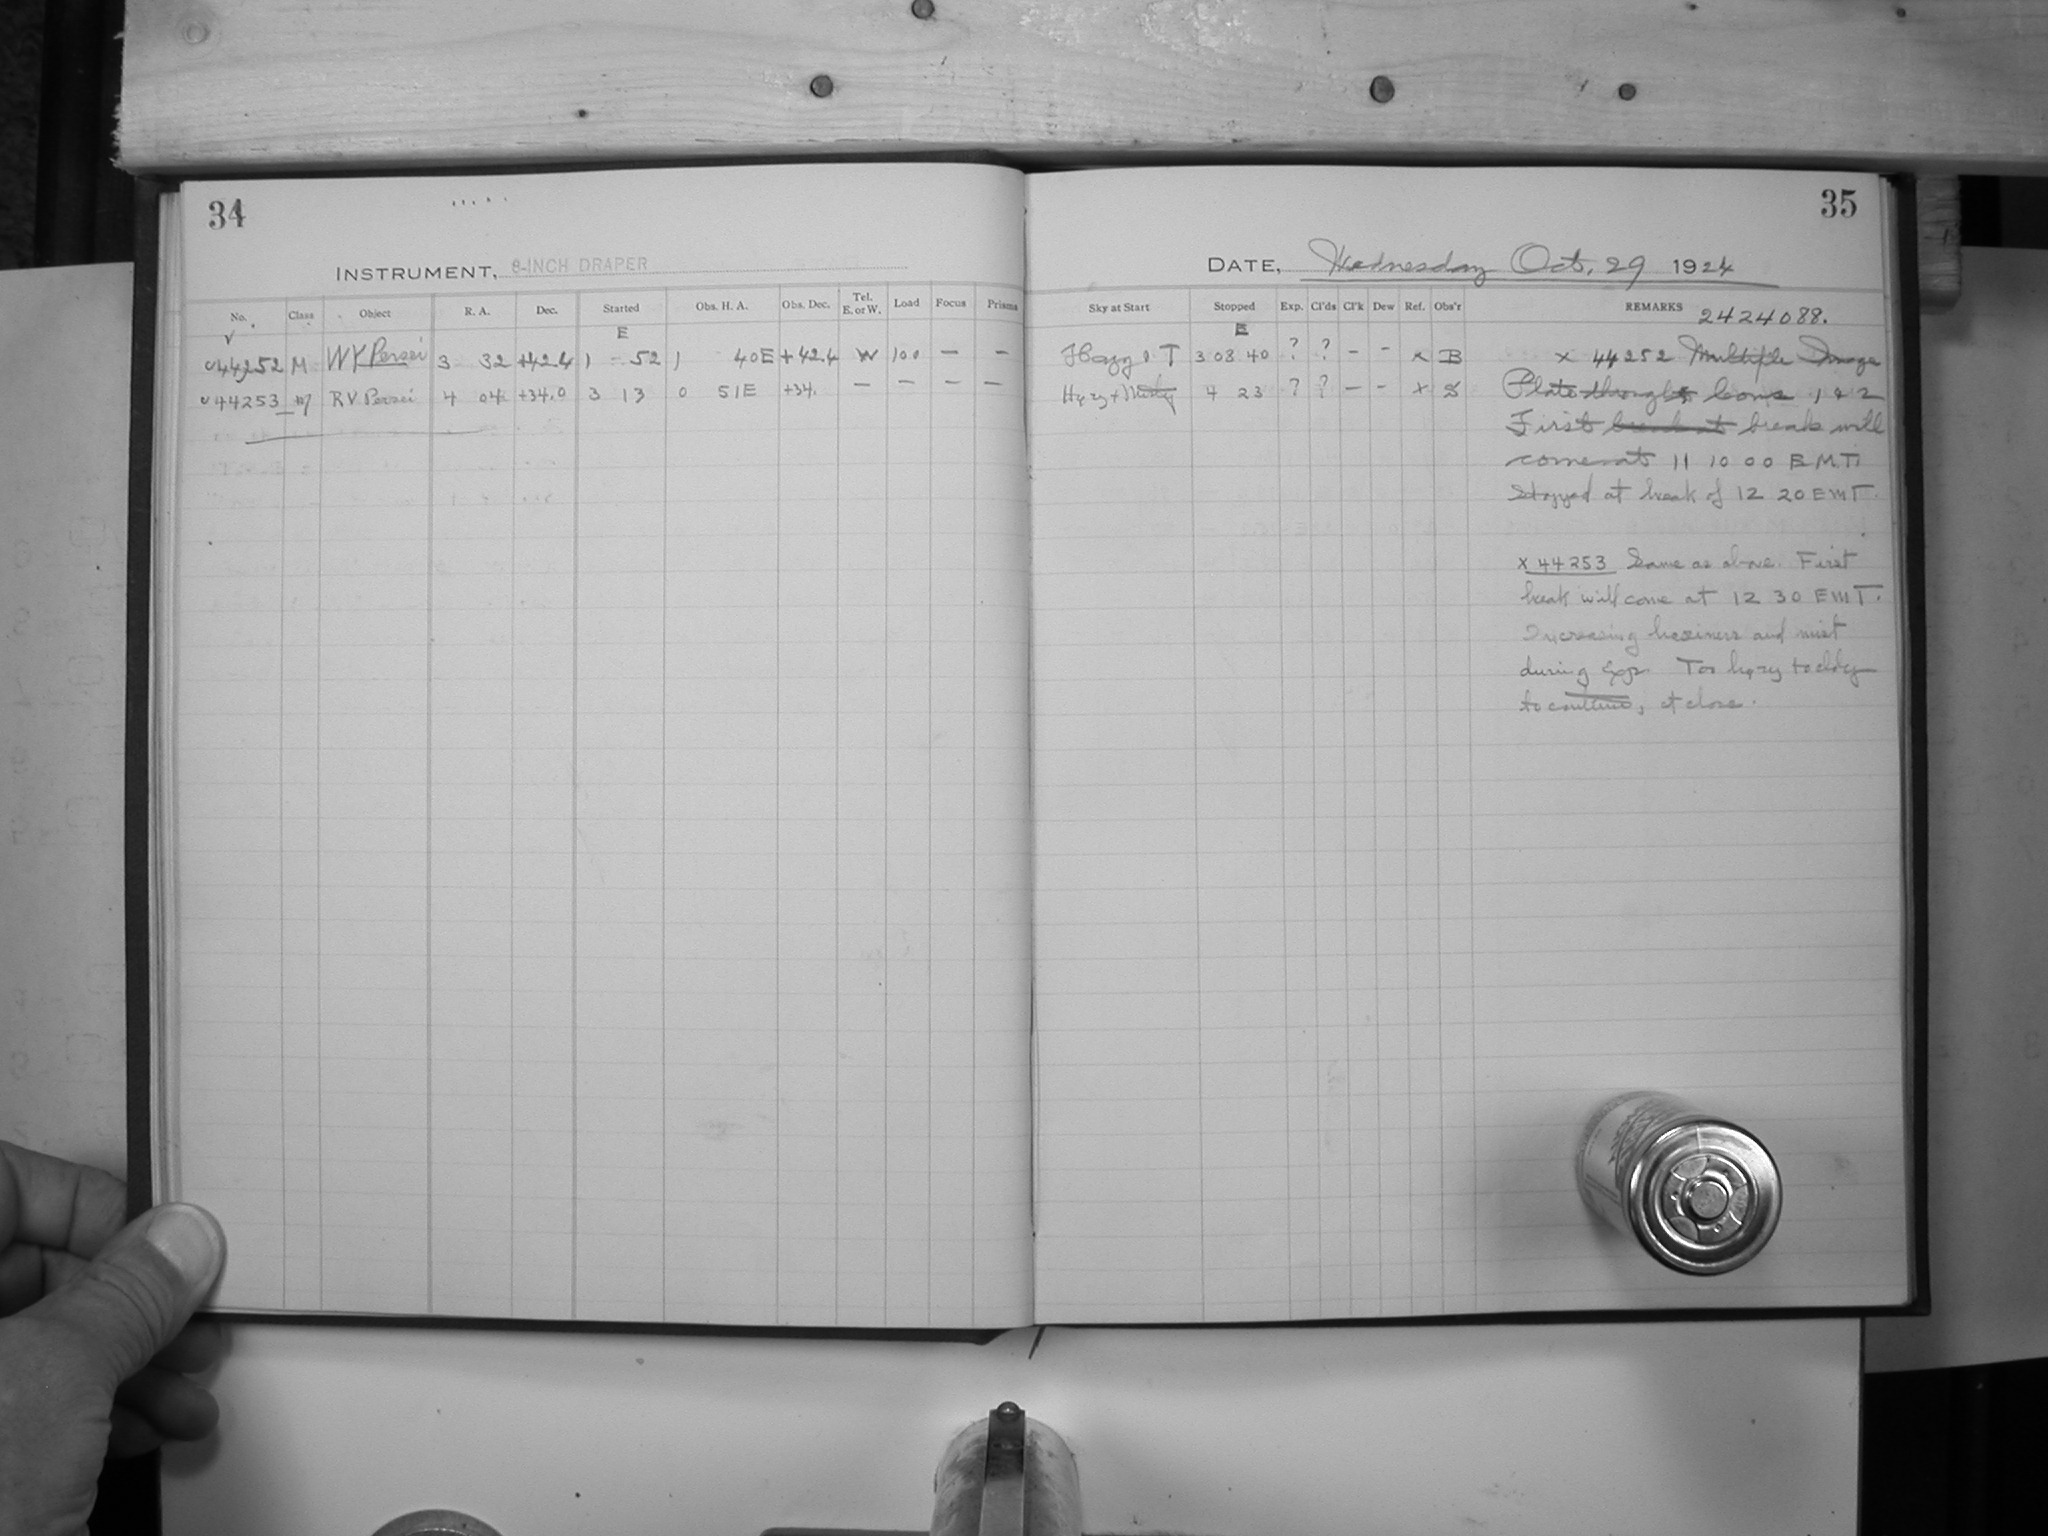 34
INSTRUMENT, 8-INCH DRAPER
No. Class Object R. A. Dec. Started Obs. H. A. Obs. Dec. Tel. E. or W. Load Focus Prisms
E
44252 M WY Persei 3 32 +42.4 1 52 1 40E +42.4 W 100 — —
44253 M RV Persei 4 04 +34.0 3 13 0 51E +34. — — — —
35
DATE, Wednesday Oct. 29 1924
Sky at Start Stopped Exp. Cl'ds Cl'k Dew Ref. Obs'r REMARKS 2424088.
E
Hazy 3 08 40 ? ? — — x B
Hazy + Misty 4 23 ? ? — — x S
x 44252 Multiple Image
Plate 1 & 2
First break at break will
come at 11 10 00 E.M.T.
Stopped at break of 12 20 EMT.
x 44253 Same as above. First
break will come at 12 30 EMT.
Increasing haziness and mist
during exp. Too hazy
to continue, at close.